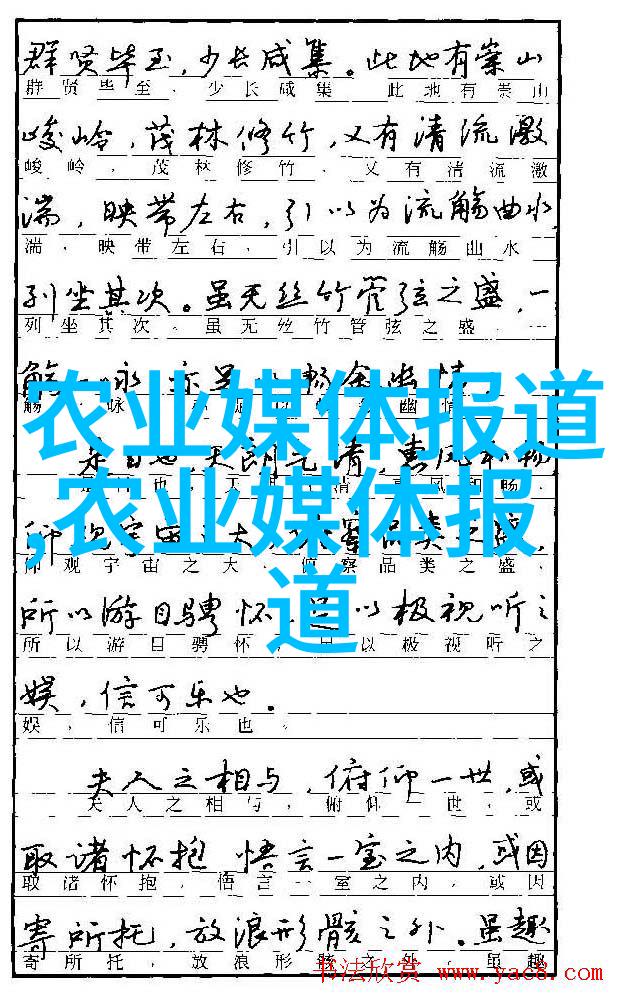 群贤毕至,少长咸集。此地有崇山
群贤毕至,少长咸集。此地有崇山
峻岭,茂林修竹,又有清流激
峻岭,茂林修竹,又有清流激
湍,映带左右,引以为流觞曲水,
湍,映带左右,引以为流觞曲水
列坐其次。虽无丝竹管弦之盛,一
列坐其次。虽无丝竹管弦之盛,一
农业媒体报道
,农业媒体报
道
仰观宇宙之大
品类之盛,
仰观宇宙之大,俯察品类之盛,
所以游目骋怀,足以极视听之
所以游目骋怀,足以极视听之
娱,信可乐也。
娱,信可乐也。
夫人之相与,俯仰一世,或
夫人之相与,俯仰一世,或
取诸怀抱 悟言一室之内,或因
取诸怀抱,悟言一室之内,或因
寄所托,放浪形骸之外。虽趣
寄所托,放浪形骸之外。虽趣
书法欣赏 www.yac8.com